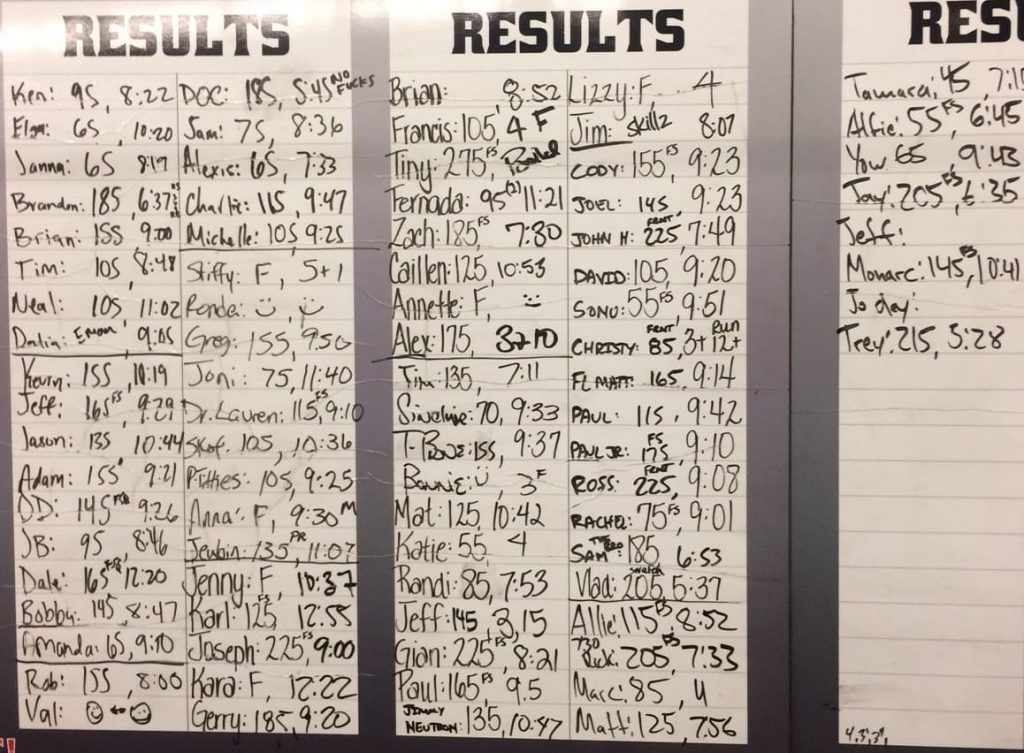 RESULTS
Ken: 95, 8:22
65, 10:20
Janna: 65 8:19
Brandon: 185, 6:37
Brian: 155 9:00
Tim: 105, 8:48
Neal: 105, 11:02
Dalia: Emom, 9:05
Kevin: 155, 10:19
Jeff: 165 FS, 9:29
Jason: 135 10:44
Adam: 155 9:21
DD: 145 9:26
JB: 95, 8:46
Dale: 165 12:20
Bobby: 145, 8:47
Amanda: 65, 9:10
Rob: 155, 8:00
Val:
DOC: 185, 5:45 NO FUCKS
Sam: 75, 8:36
Alexis: 65, 7:33
Charlie: 115, 9:47
Michelle: 105, 9:25
Stiffy: F, 5+1
Greg: 155, 9:50
Joni: 75, 11:40
Dr. Lauren: 115 FS, 9:10
Skof: 105, 10:36
105, 9:25
Anna: F, 9:30 M
135 PR, 11:07
Jenny: F, 10:37
Karl: 125 FS, 12:55
Joseph: 225 FS, 9:00
Kara: F, 12:22
Gerry: 185, 9:20
RESULTS
Brian: , 8:52
Francis: 105, 4 F
Tiny: 275 FS,
Fernada: 95 (2) 11:21
Zach: 185 FS, 7:30
Caillen: 125, 10:53
Annette: F,
Alex: 175, 3+10
Tim: 135, 7:11
70, 9:33
T-Bone: 155, 9:37
Bonnie: , 3 F
Mat: 125, 10:42
Katie: 55, 4
Randi: 85, 7:53
Jeff: 145, 3,15
Gian: 225 FS, 8:21
Paul: 165 FS, 9.5
JIMMY NEUTRON: 135, 10:47
Lizzy: F, 4
Jim: skillz 8:07
CODY: 155 FS, 9:23
JOEL: 145, 9:23
JOHN H: 225 FRNT, 7:49
DAVID: 105, 9:20
SONU: 55 FS, 9:51
CHRISTY: 85 FRNT, 3+ Run 12+
FL MATT: 165, 9:14
PAUL: 115, 9:42
PAUL JR: 175 FS, 9:10
ROSS: 225 FRNT, 9:08
RACHEL: 75 FS, 9:01
SAM THE BRO: 185 6:53
Vlad: 205, 5:37
Allie: 115 FS, 8:52
730 Rick: 205 FS, 7:33
Marc: 85, 4
Matt: 125, 7:56
RESU
Tamara: 45, 7:1
Alfie: 55 FS, 6:45
Yow 65, 9:43
Jay: 205 FS, 6:35
Jeff:
Monarc: 145 FS, 10:41
Jo day:
Trey: 215, 5:28